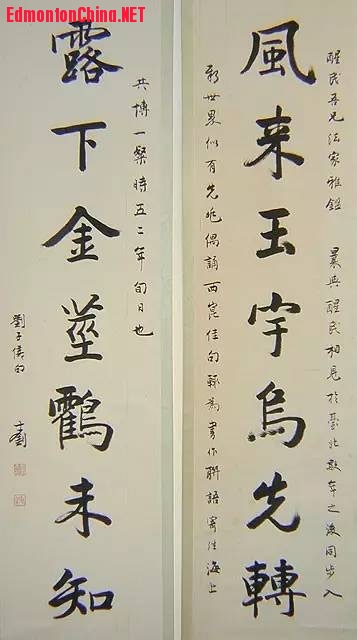 EdmontonChina.NET
醒民吾兄法家雅鑑　曩與醒民相見於臺北數年之後同步入
風来玉宇烏先轉
新世界似有先兆偶誦西崑佳句輒為書作聯語寄往海上
共博一粲時五二年旬日也
露下金莖鸖未知
劉子